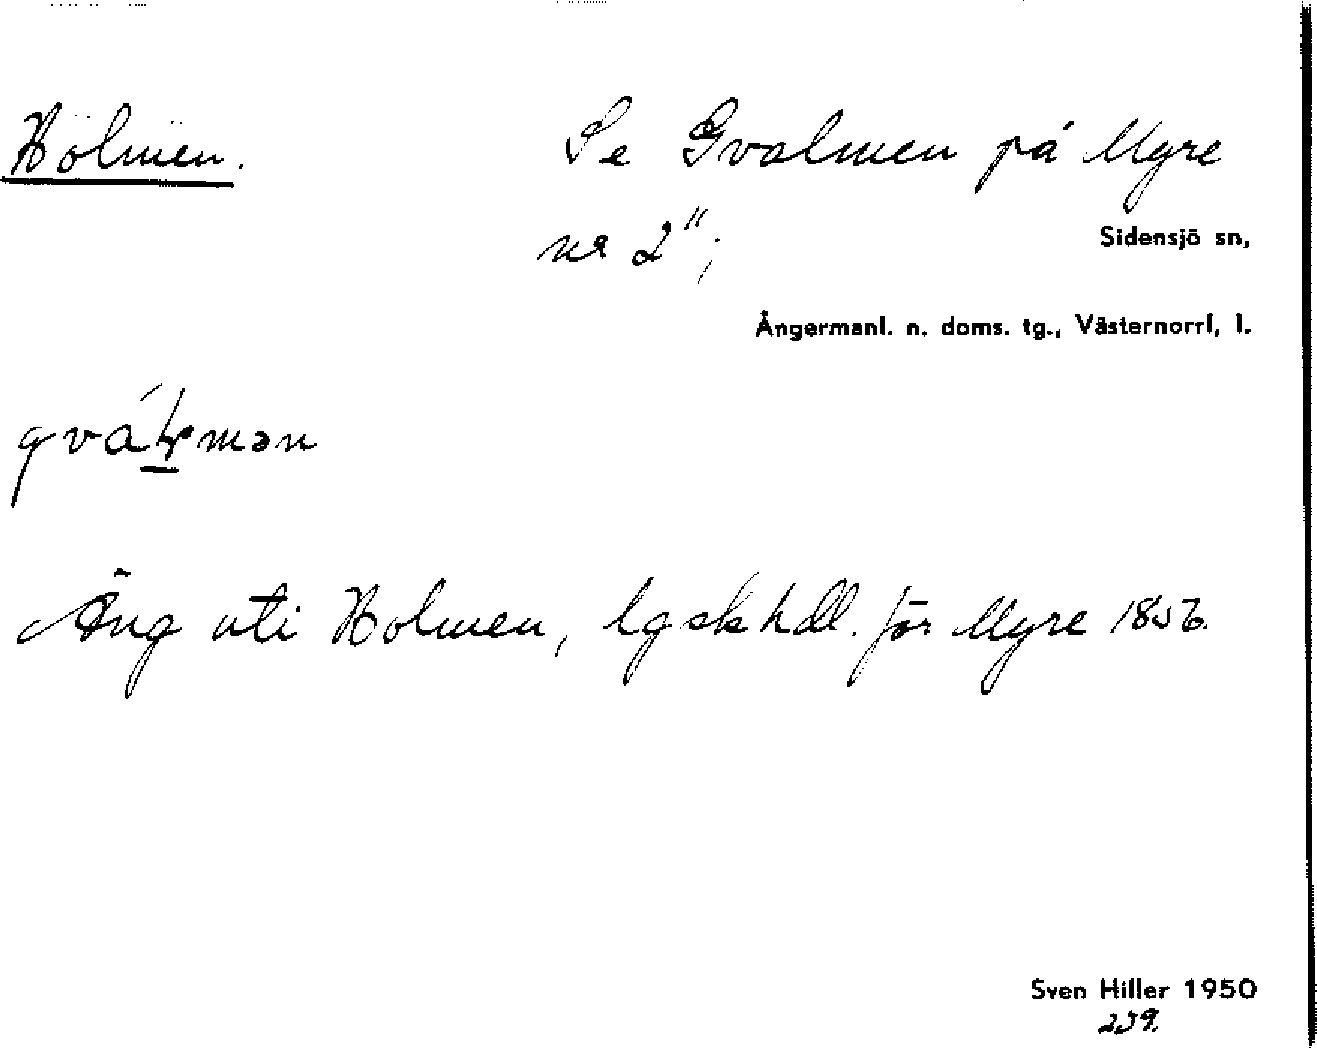 Holmen. Se Gvalmen på Myre
nr 2";
Sidensjö sn,
Ångermanl. n. doms. tg., Västernorrl, l.
Äng uti Holmen, lgskhdl. för Myre 1856.
Sven Hiller 1950
239.